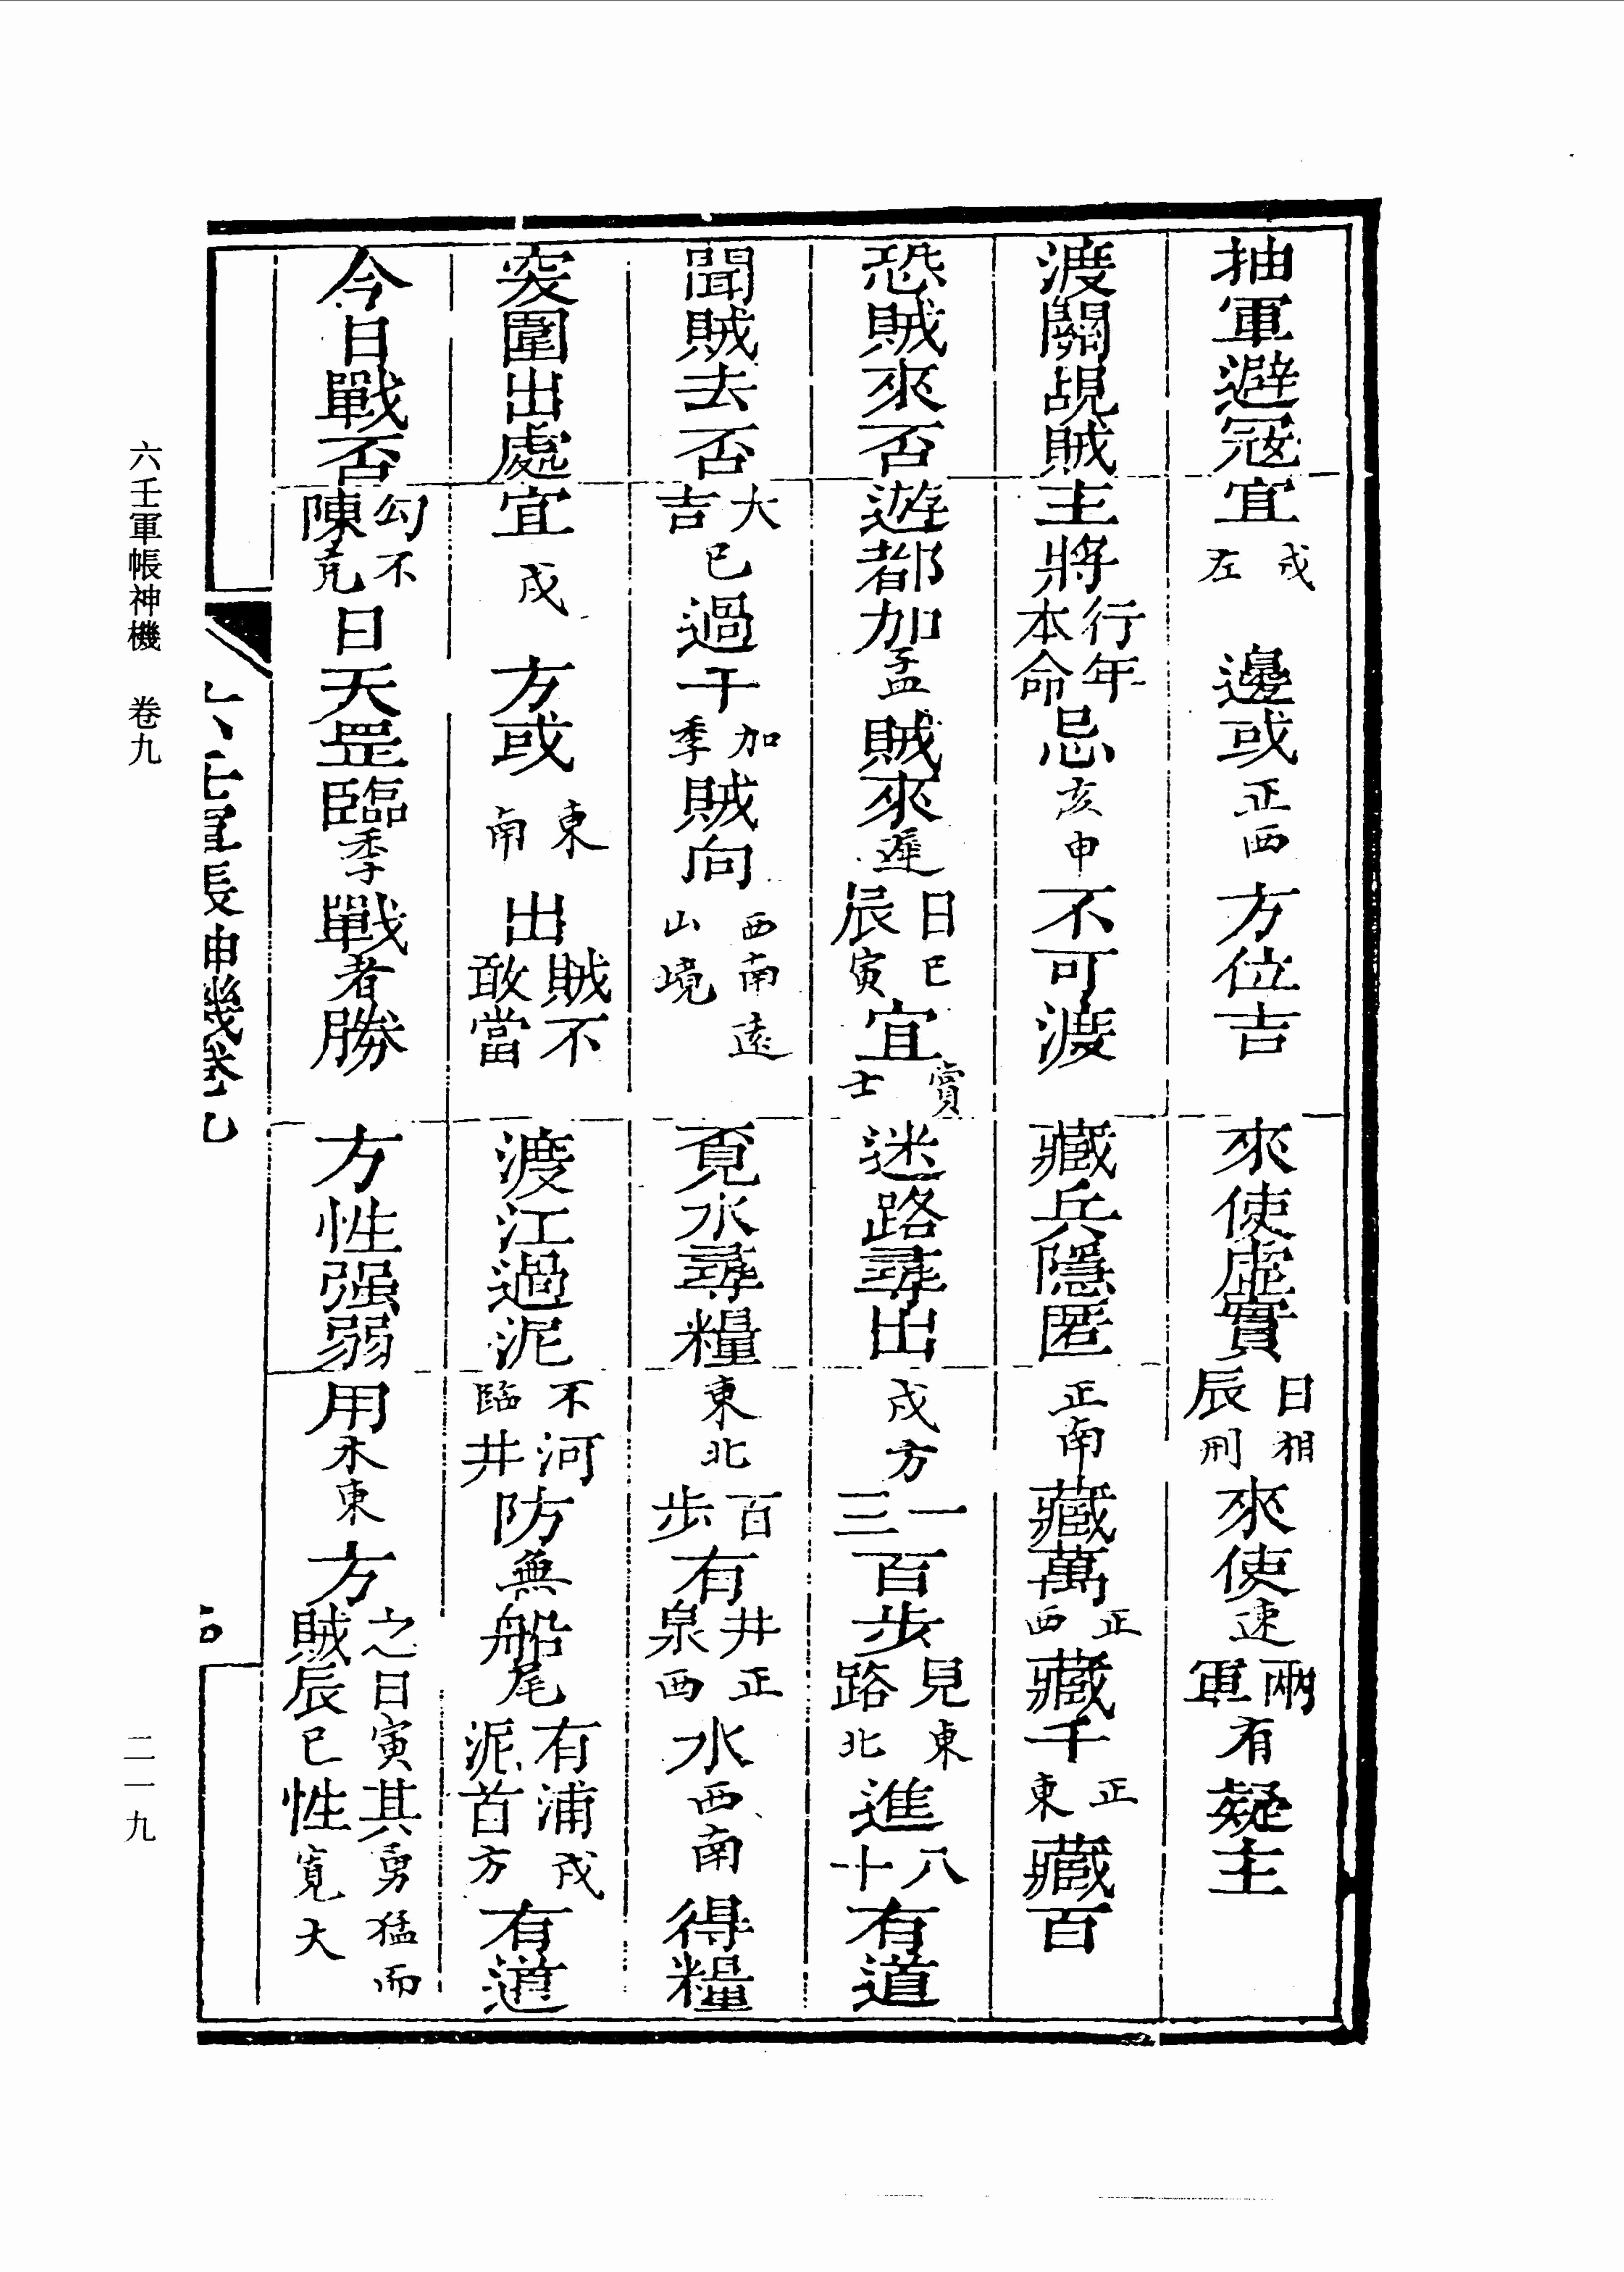 抽軍避冦宜戌左邊或正西方位吉來使虛實日相辰刑來使速兩軍有疑主
渡關覘賊主將行年本命忌亥申不可渡藏兵隱匿正南藏萬正西藏千正東藏百
恐賊來否遊都加孟賊來遲日巳辰寅宜賞士迷路尋出戌方一三百步見路東北進八十有道
聞賊去否大吉巳過干加季賊向西南遠山境覓水尋糧東北百步有井泉正西水西南得糧
突圍出處宜戌方或東南出賊不敢當渡江過泥不臨河井防無船尾有浦泥首戌方有道
今日戰否勾陳不克日天罡臨季戰者勝方性强弱用木東方之賊日寅辰巳其性勇猛而寬大
六壬軍帳神機卷九
六壬軍帳神機 卷九
二一九